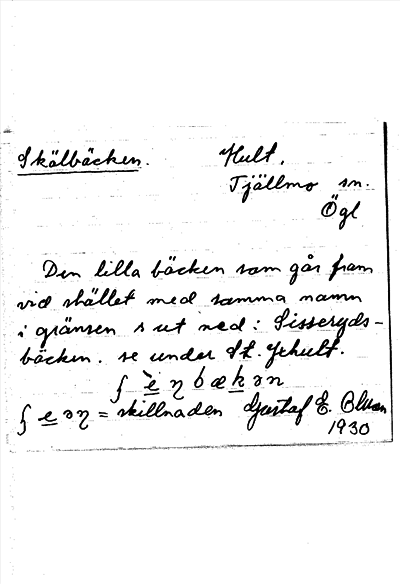 Skälbäcken. Hult.
Tjällmo sn.
Ögl
Den lilla bäcken som går fram
vid stället med samma namn
i gränsen s ut ned i Sisseryds-
bäcken. se under St.
ʃ è ŋ b æ k ə n
ʃ e ə ŋ = skillnaden Gustaf E.
1930